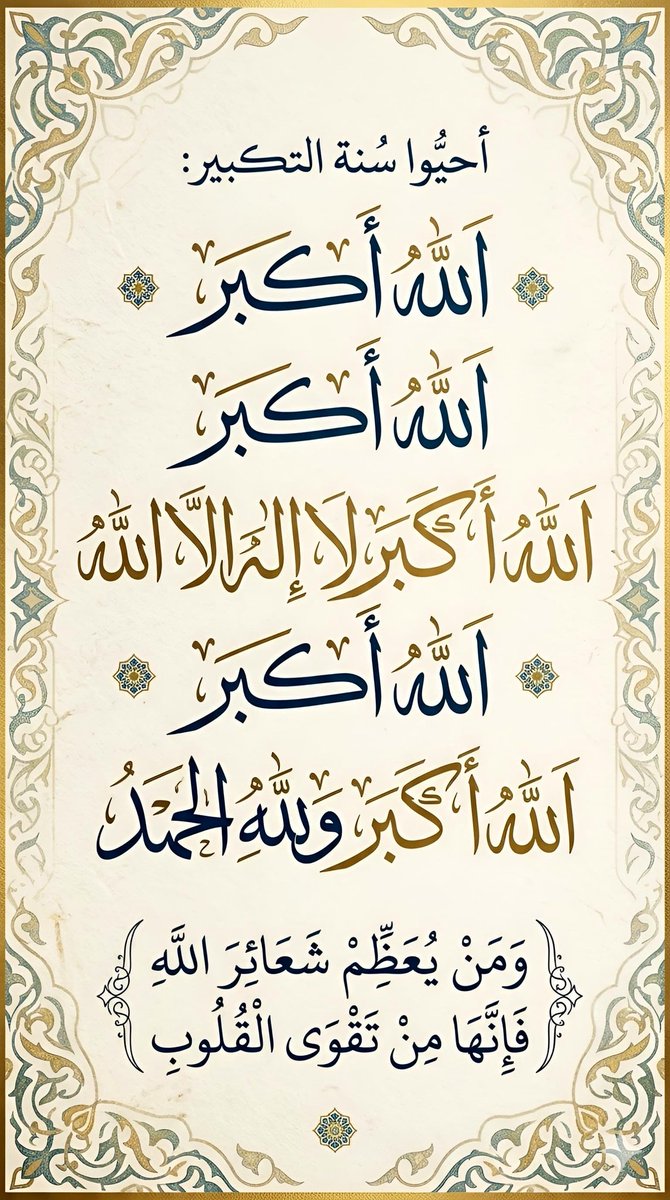 أحيُّوا سُنة التكبير:
اَللّٰهُ أَكبَر
اَللّٰهُ أَكبَر
اَللّٰهُ أَكَبَر لَا إِلٰهَ الَّا اللّٰهُ
اَللّٰهُ أَكبَر
اَللّٰهُ أَكَبَر وَلِلّٰهِ الحَمَدُ
وَمَنْ يُعَظِّمْ شَعَائِرَ اللَّهِ
فَإِنَّهَا مِنْ تَقْوَى الْقُلُوبِ